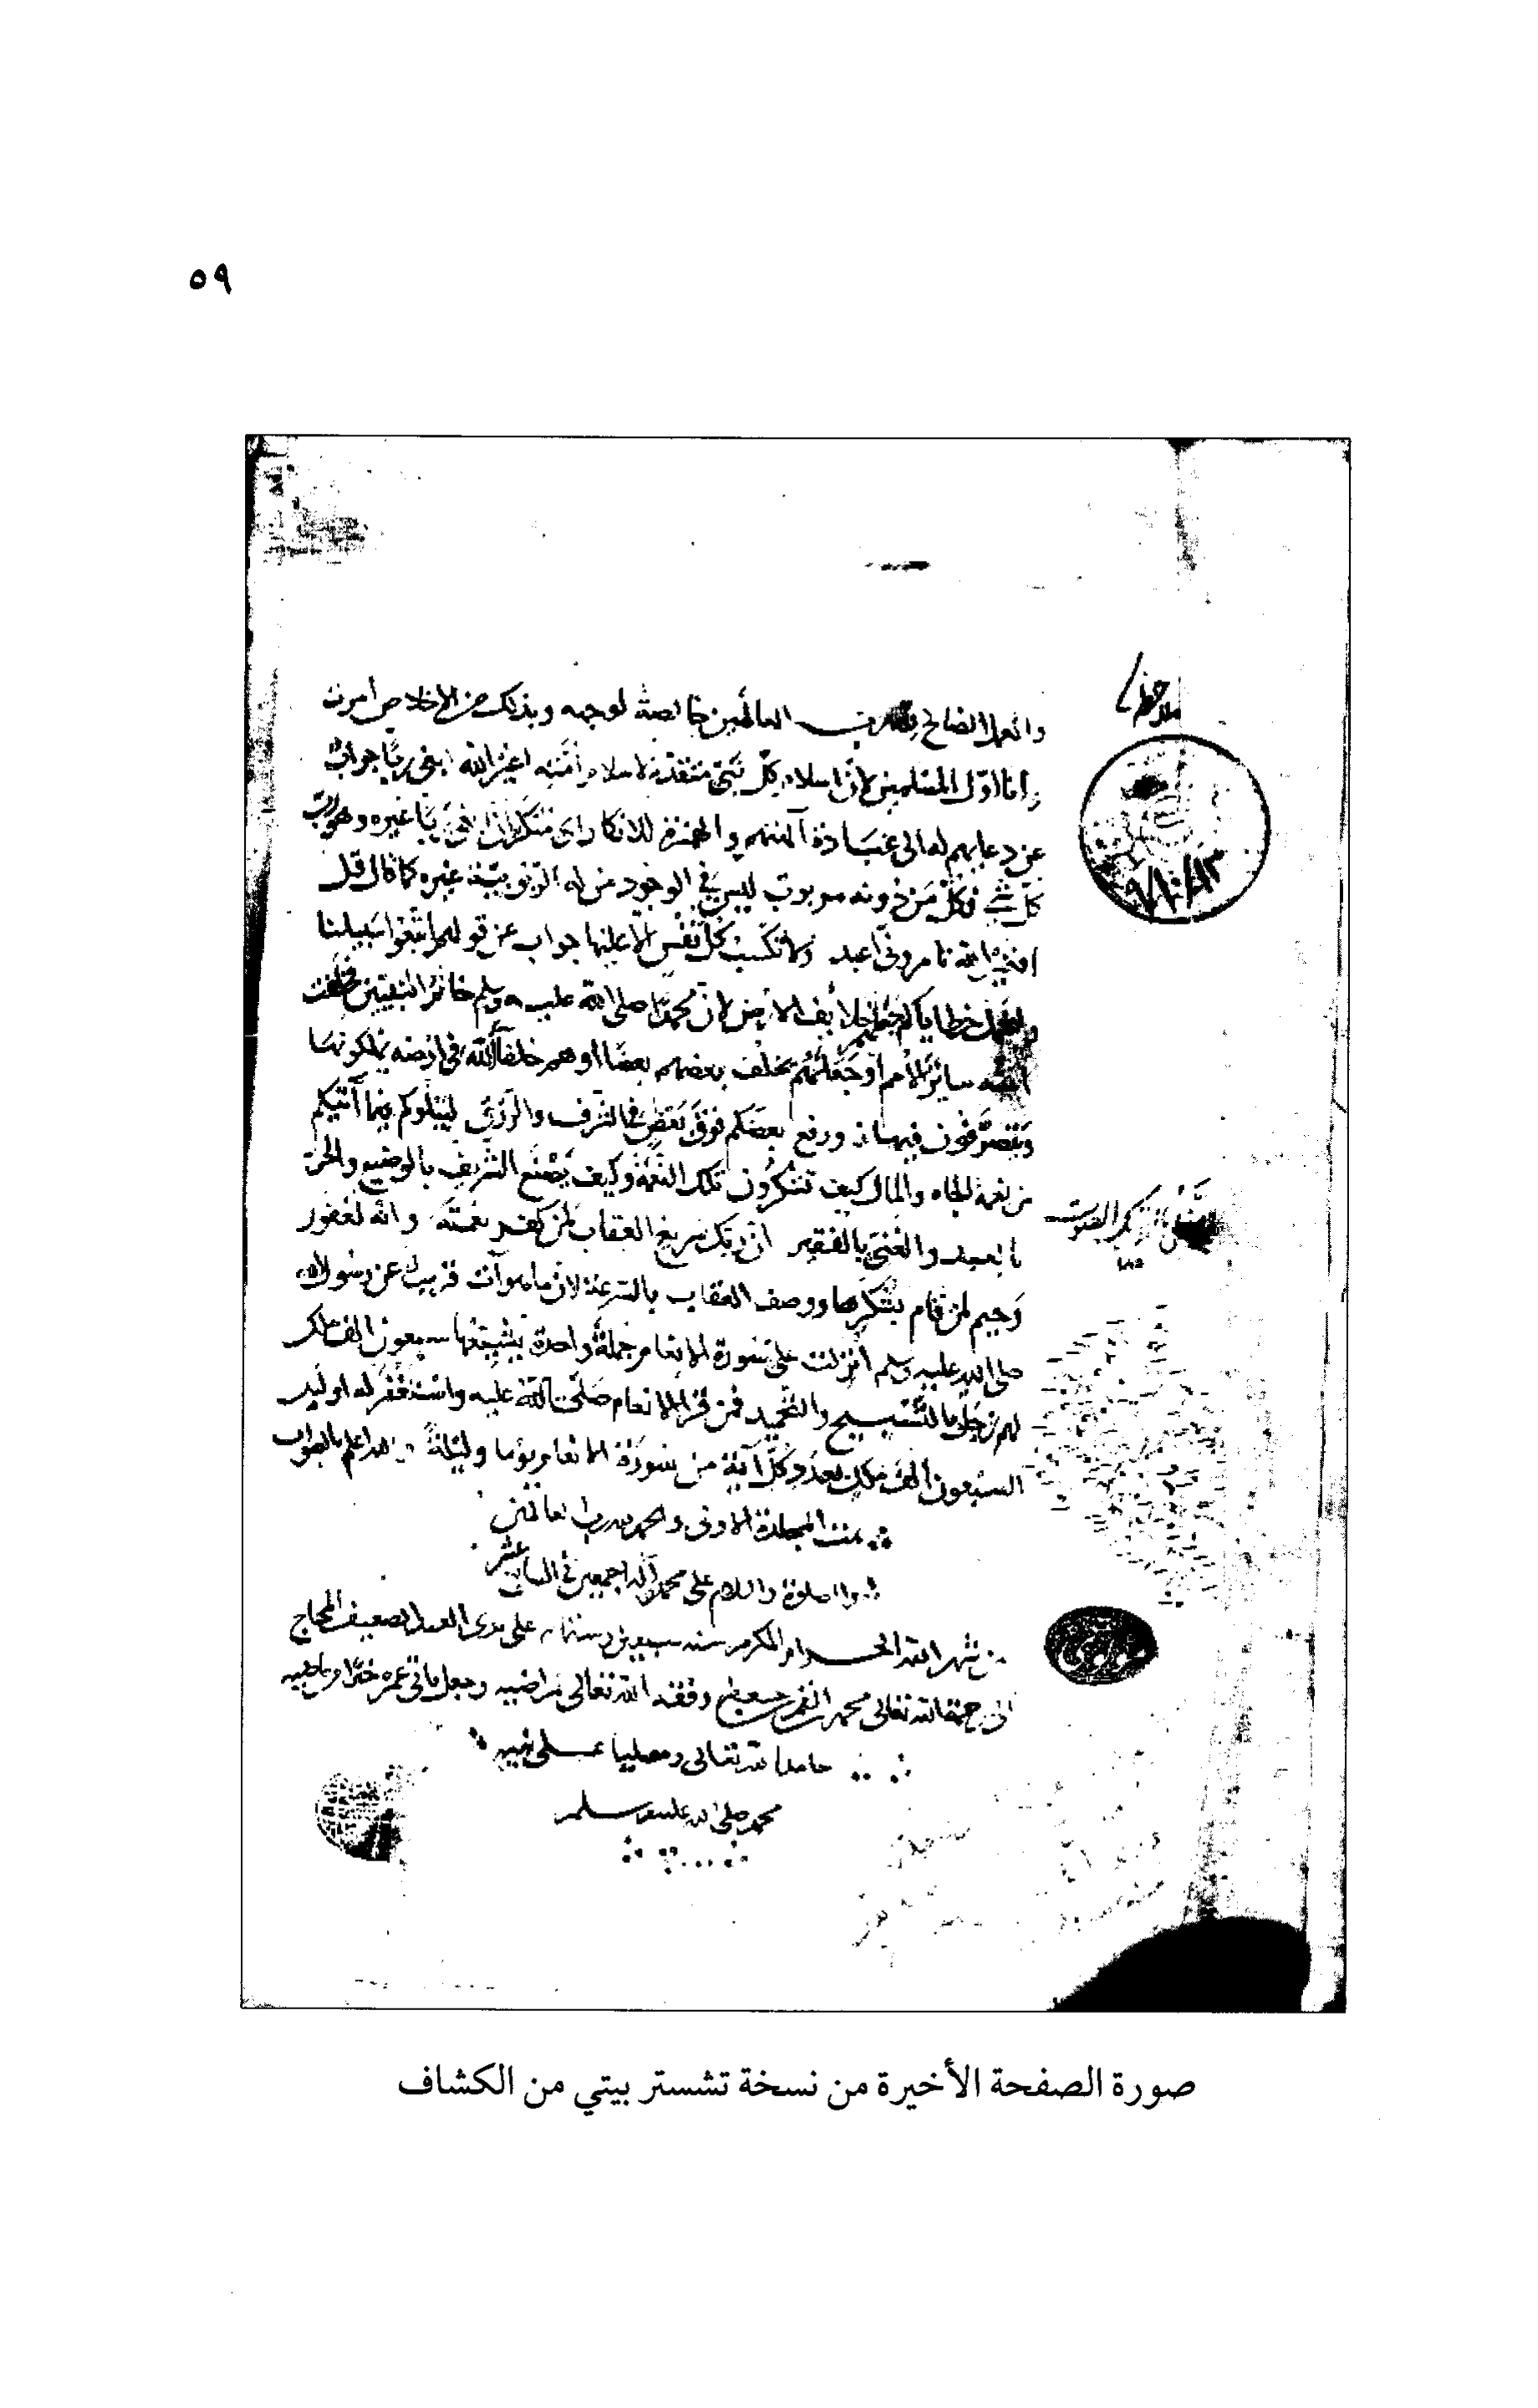 ٥٩
والعمل الصالح لله رب العالمين خالصة لوجهه وبذلك من الإخلاص أمرت
وأنا أول المسلمين لأن إسلام كل نبي متقدم لإسلام أمته أغير الله أبغي ربا جواب
عن دعائهم له إلى عبادة آلهتهم والهمزة للإنكار أي منكر أن أبغي ربا غيره وهو رب
كل شيء فكل من دونه مربوب ليس في الوجود من له الربوبية غيره كما قال قل
أفغير الله تأمروني أعبد ولا تكسب كل نفس إلا عليها جواب عن قولهم اتبعوا سبيلنا
ولنحمل خطاياكم جعلكم خلائف الأرض لأن محمدا صلى الله عليه وسلم خاتم النبيين فخلفت
أمته سائر الأمم أو جعلهم يخلف بعضهم بعضا أو هم خلفاء الله في أرضه يملكونها
ويتصرفون فيها ورفع بعضكم فوق بعض في الشرف والرزق ليبلوكم فيما آتيكم
من نعمة الجاه والمال كيف تشكرون تلك النعمة وكيف يصنع الشريف بالوضيع والحر
بالعبد والغني بالفقير إن ربك سريع العقاب لمن كفر نعمته وانه لغفور
رحيم لمن قام بشكرها ووصف العقاب بالسرعة لأن ما هو آت قريب عن رسول الله
صلى الله عليه وسلم أنزلت علي سورة الأنعام جملة واحدة يشيعها سبعون ألف ملك
لهم زجل بالتسبيح والتحميد فمن قرأ الأنعام صلى الله عليه واستغفر له أوليك
السبعون ألف ملك بعدد كل آية من سورة الأنعام يوما وليلة والله اعلم بالصواب
تمت المجلدة الأولى والحمد لله رب العالمين
والصلوة والسلام على محمد وآله أجمعين في عشر
من شهر الله الحرام المكرم سنه سبعين وستمايه على يدي العبد الضعيف المحتاج
الى رحمة الله تعالى محمد وفقه الله تعالى مراضيه وجعل باقي عمره خيرا من ماضيه
حامدا لله تعالى ومصليا على نبيه
محمد صلى الله عليه وسلم
صورة الصفحة الأخيرة من نسخة تشستر بيتي من الكشاف